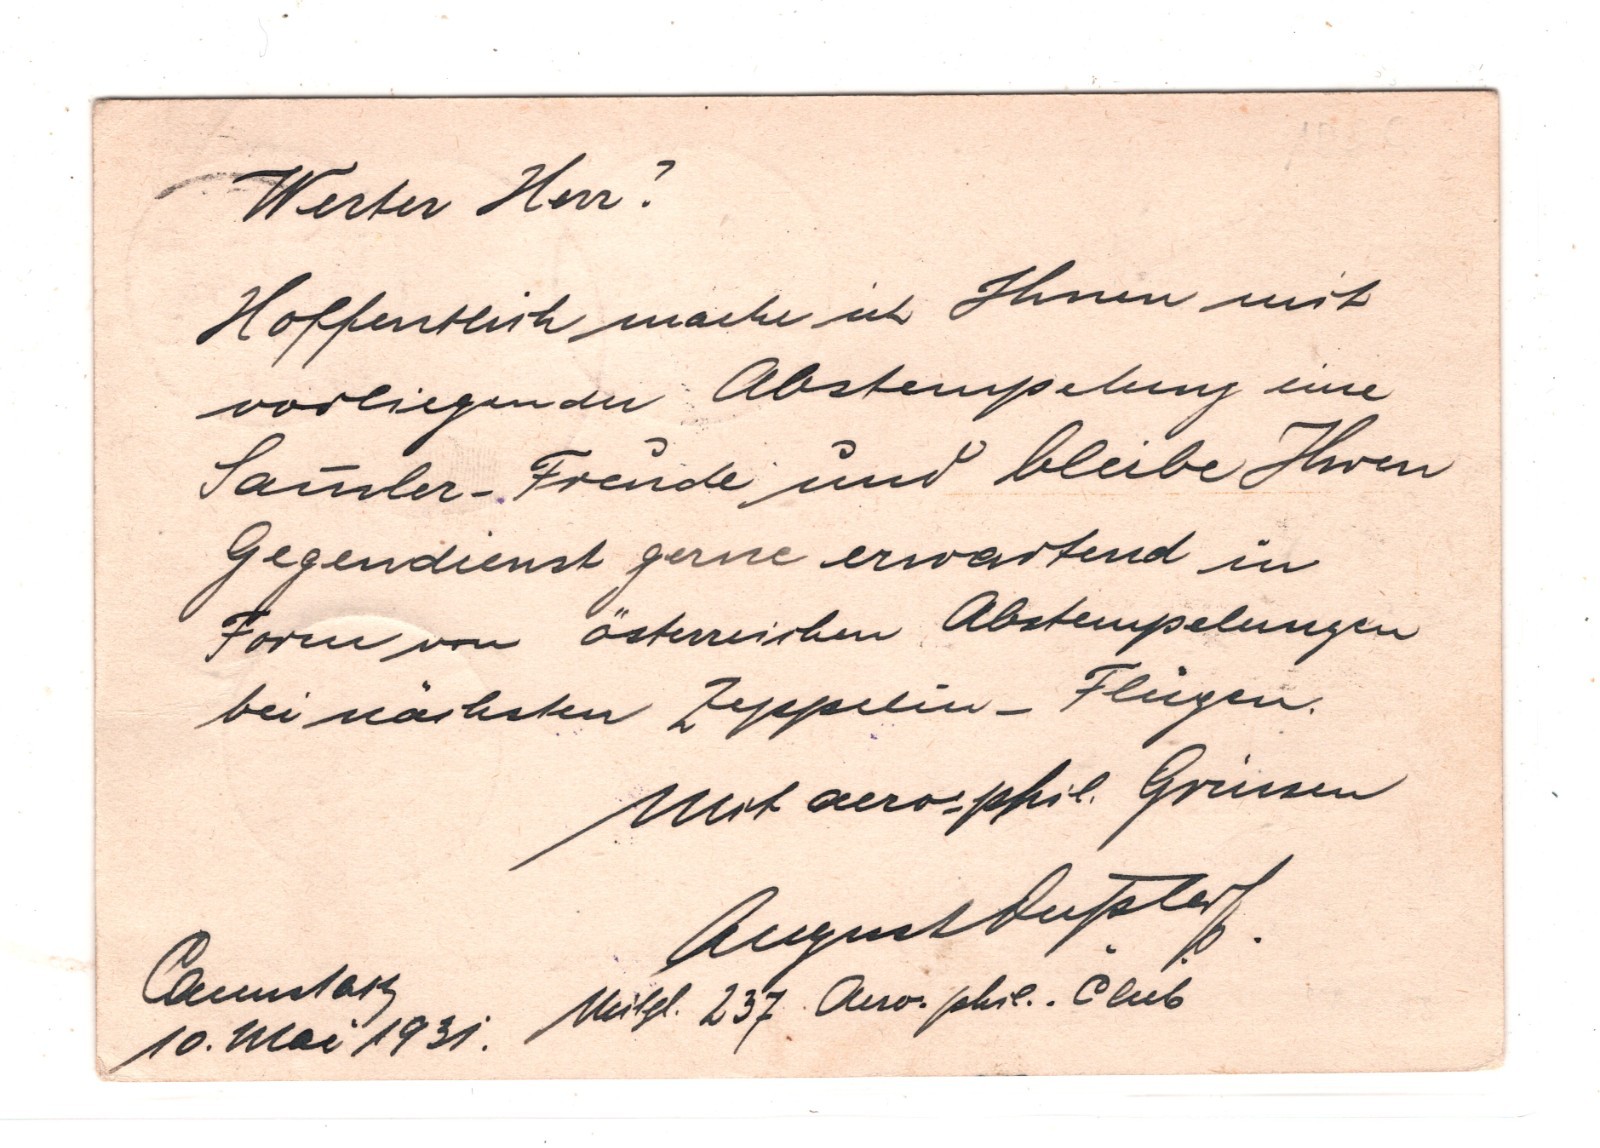 Werter Herr?
Hoffentlich mache ich Ihnen mit
vorliegender Abstempelung eine
Sam̅ler-Freude und bleibe Ihren
Gegendienst gerne erwartend in
Form von österreichen Abstempelungen
bei nächsten Zeppelin-Flügen.
Mit aero-phil. Grüssen
August
Mitgl. 237 Aero-phil. Club
Cannstatt
10. Mai 1931.